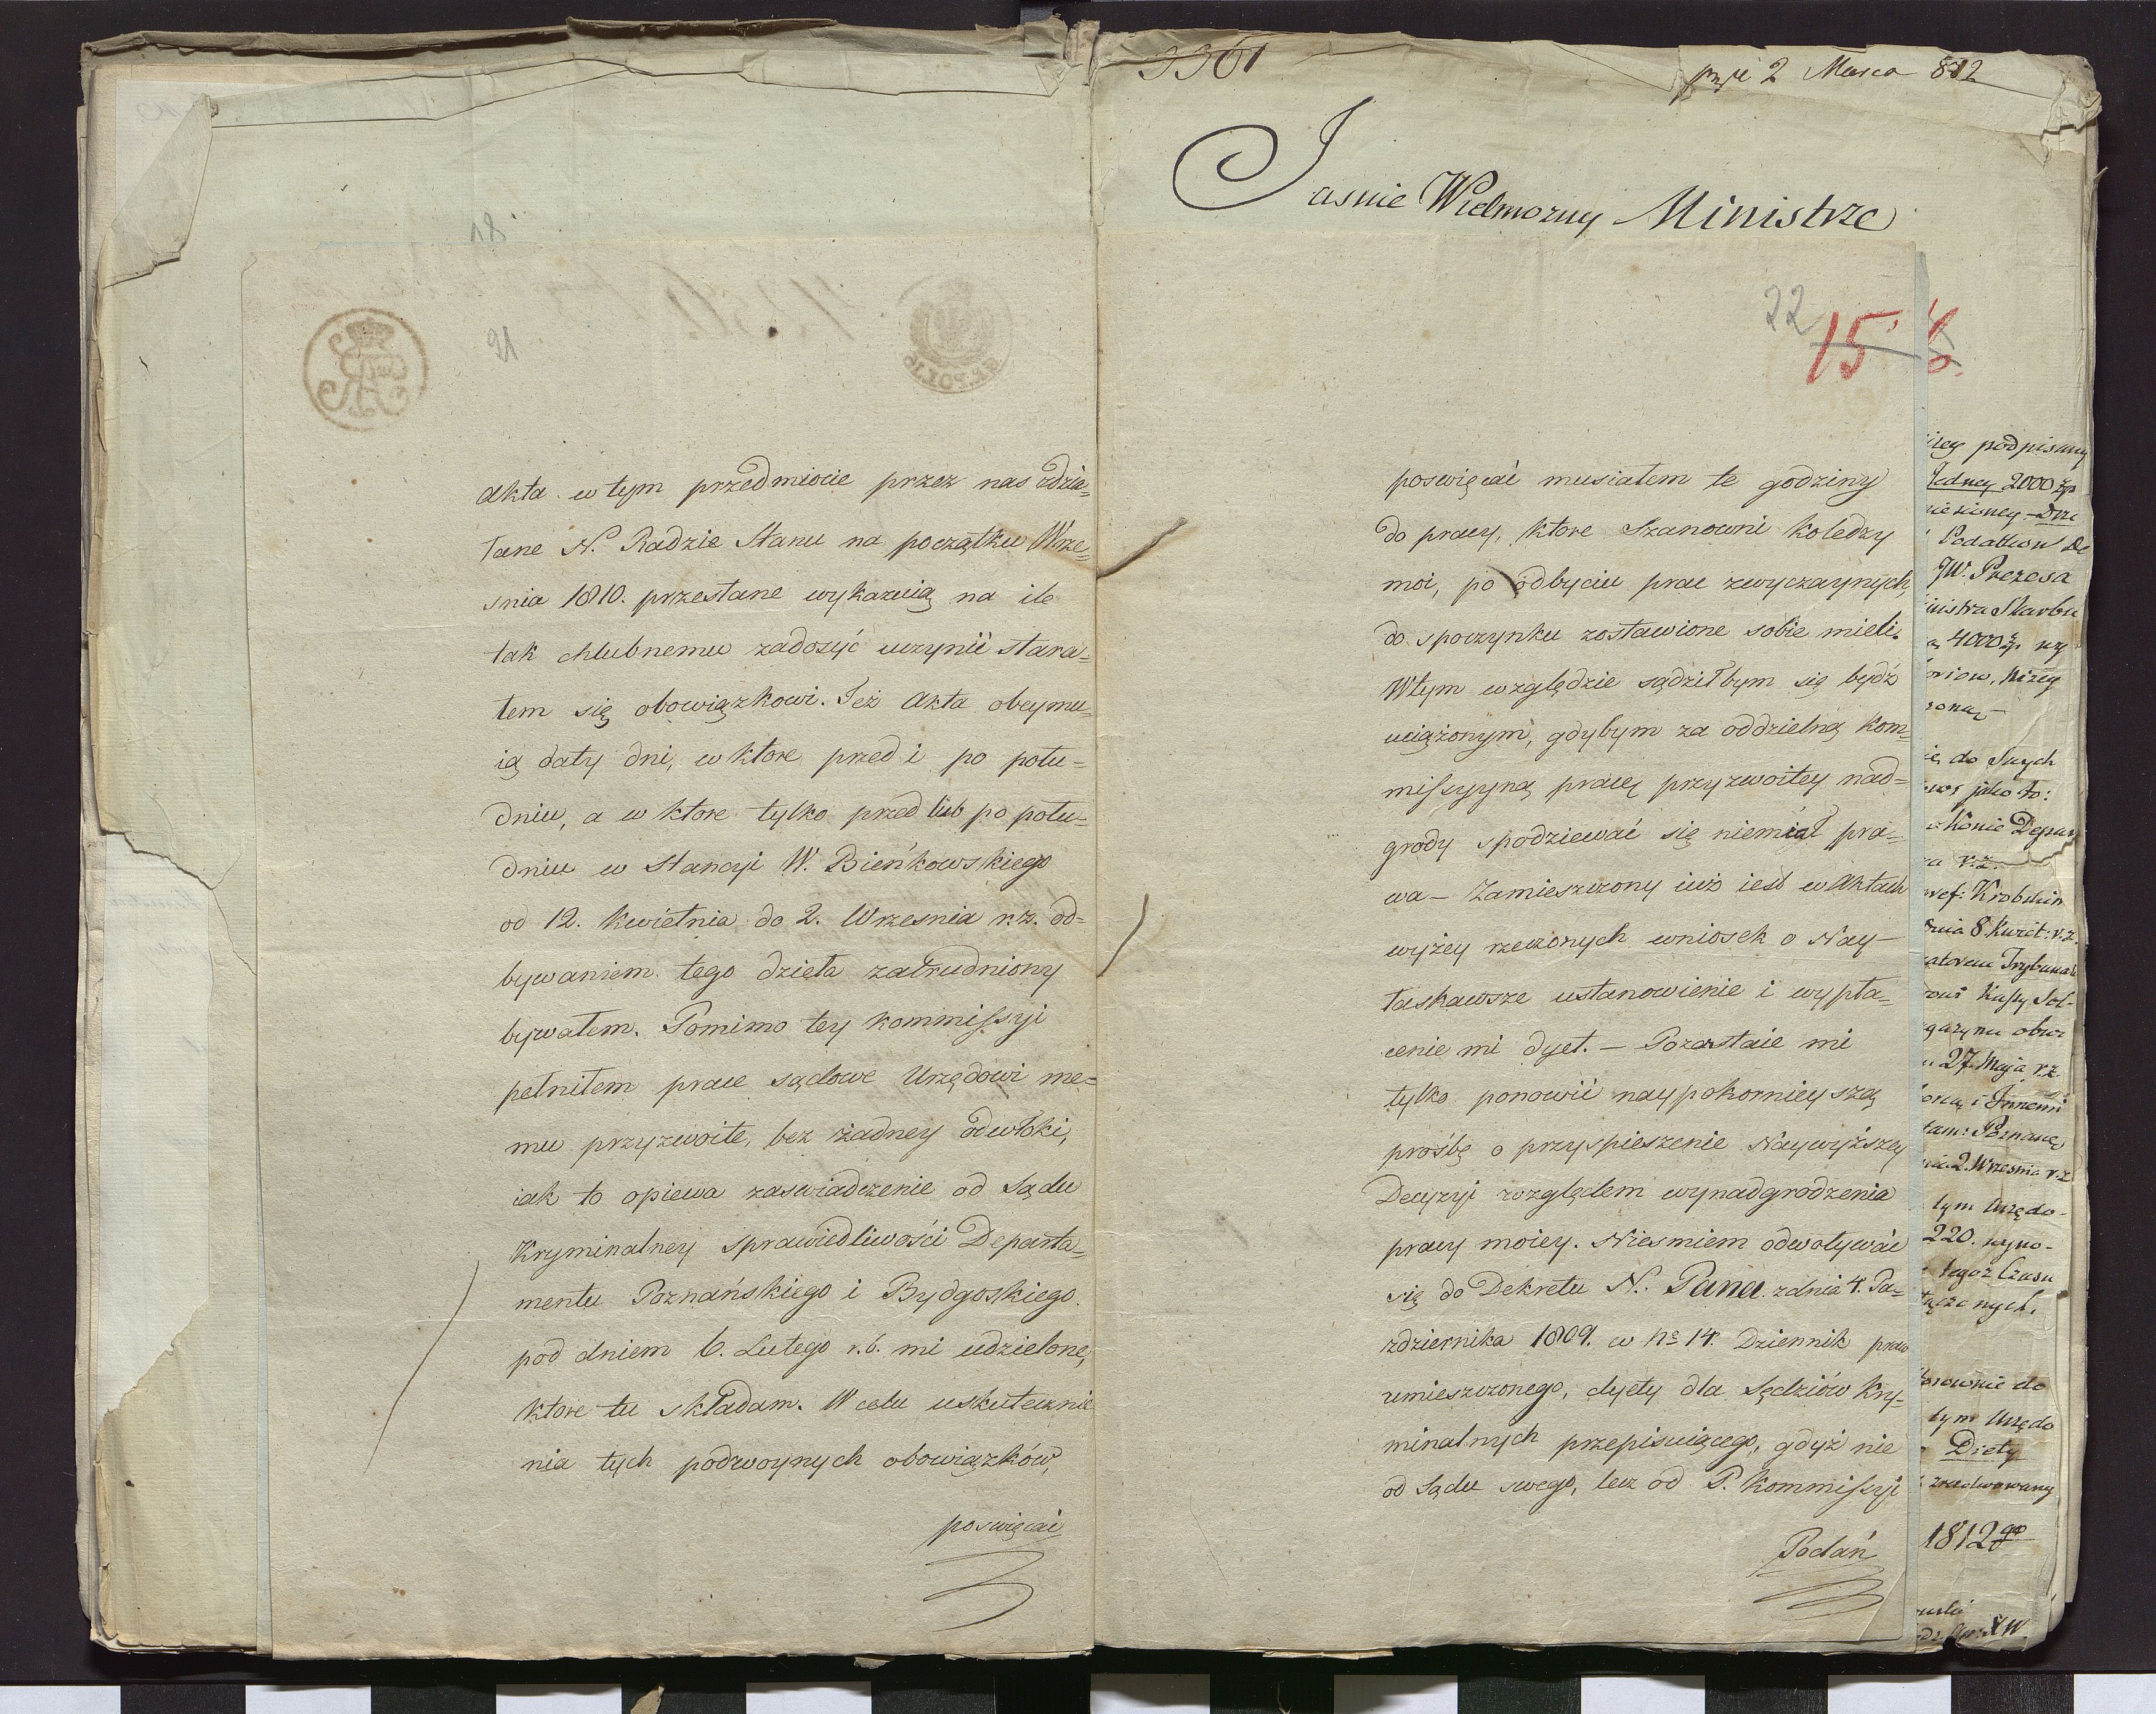 18
21
akta w tym przedmiocie przez nas zdzia=
łane N. Radzie Stanu na początku Wrze=
snia 1810. przesłane wykazuią na ile
tak chlubnemu zadosyć uczynić stara=
łem się obowiązkowi. Też Akta obeymu=
ią daty dni, w ktore przed i po połu=
dniu, a w ktore tylko przed lub po połu=
dniu w Stancyi W. Bieńkowskiego
od 12. Kwietnia do 2. Wrzesnia r.z. od=
bywaniem tego dzieła zatrudniony
bywałem. Pomimo tey Kommissyi
pełniłem prace sądowe Urzędowi me=
mu przyzwoite, bez żadney odwłoki,
iak to opiewa zaswiadczenie od Sądu
Kryminalney sprawiedliwości Departa=
mentu Poznańskiego i Bydgoskiego
pod dniem 6. Lutego r.b. mi udzielone,
ktore tu składam. W celu uskutecznie
nia tych podwoynych obowiązków,
poswięcać
3361
2 Marca 812
Jasnie Wielmozny Ministrze
22
15
6.
poswięcać musiałem te godziny
do pracy, ktore Szanowni Koledzy
moi, po odbyciu prac zwyczaynych,
do spoczynku zostawione sobie mieli.
W tym względzie sądziłbym się bydź
uciążonym, gdybym za oddzielną Kom=
missyyną pracę przyzwoitey nad=
grody spodziewać się niemiał pra=
wa – Zamieszczony iuż iest w Aktach
wyżey rzeczonych wniosek o Nay=
łaskawsze ustanowienie i wypła=
cenie mi dyet. – Pozostaie mi
tylko ponowić naypokornieyszą
prośbę o przyspieszenie Naywyższey
Decyzyi względem wynadgrodzenia
pracy moiey. Niesmiem odwoływać
się do Dekretu N. Pana z dnia 4. Pa=
zdziernika 1809. w No 14. Dziennik praw
umieszczonego, dyety dla Sędziów Kry=
minalnych przepisuiącego, gdyż nie
od Sądu swego, lecz od P. Kommissyi
Podań
podpisany
Jedney 2000 złp
Podatkow De
JW. Prezesa
Skarbu
4000 złp
niżey
do Swych
jako to:
Konie Depar
r.z.
Krobskim
8 Kwiet: r.z.
Trybunału
Kassy Sol-
obwo
27 Maja r.z.
i Innemi
Poznane
2. Wrzesnia r.z.
tym Urzędo-
220. wyno-
tegoz Czasu
do
tym Urzędo
Diety
1812go